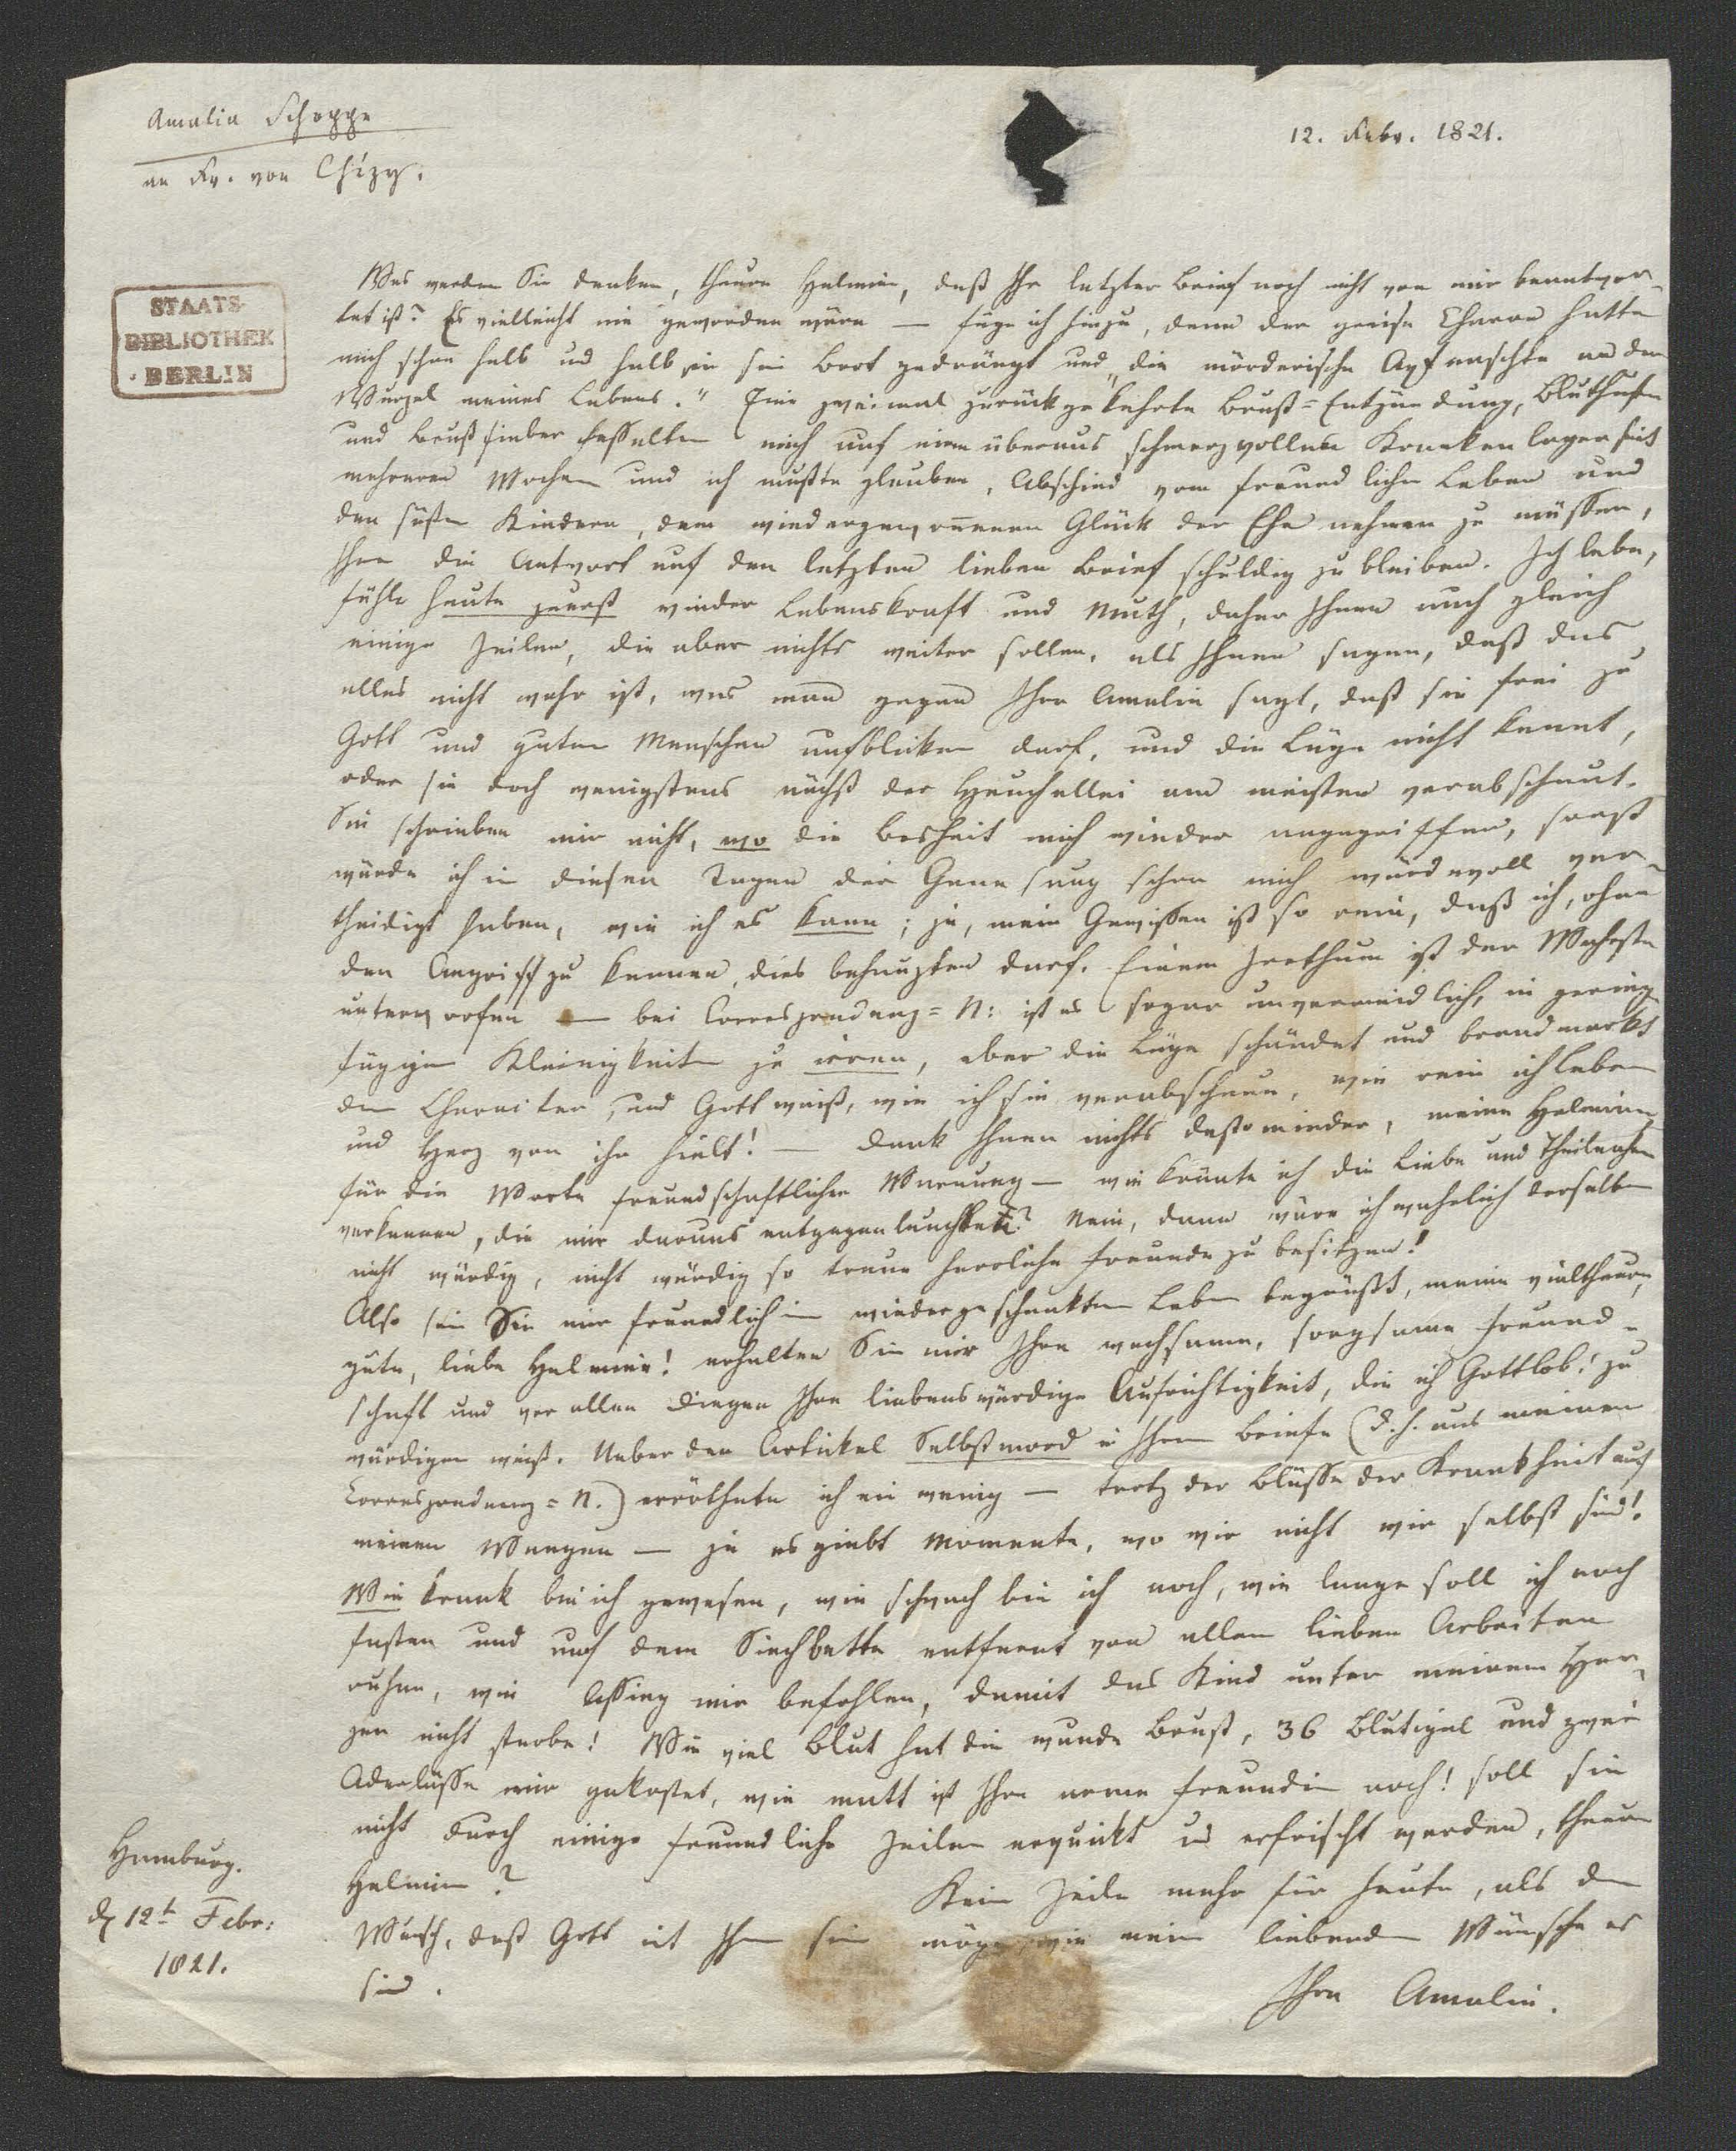 Amalia Schoppe
an Fr. von Chézy.
12. Febr. 1821.
STAATS-
BIBLIOTHEK
BERLIN
Was werden Sie denken, theure Helmine, daß Ihr letzter Brief noch nicht von mir beantwor-
tet ist? Es vielleicht nie geworden wäre — füge ich hinzu, denn der greise Charon hatte
mich schon halb und halb in sein Boot gedrängt und „die mörderische Axt naschte an der
Wurzel meines Lebens." Eine zweimal zurückgekehrte Brust=Entzündung, Bluthusten
und Brustfieber fesselten mich auf einem überaus schmerzvollen Krankenlager seit
mehreren Wochen und ich mußte glauben, Abschied vom freundlichen Leben und
den süßen Kindern, dem wiedergewonnenen Glück der Ehe nehmen zu müssen,
Ihnen die Antwort auf den letzten lieben Brief schuldig zu bleiben. Ich lebe,
fühle heute zuerst wieder Lebenskraft und Muth, daher Ihnen auch gleich
einige Zeilen, die aber nichts weiter sollen, als Ihnen sagen, daß das
alles nicht wahr ist, was man gegen Ihre Amalie sagt, daß sie frei zu
Gott und guten Menschen aufblicken darf, und die Lüge nicht kennt,
oder sie doch wenigstens nächst der Heuchellei am meisten verabscheut.
Sie schrieben mir nicht, wo die Bosheit mich wieder angegriffen, sonst
würde ich in diesen Tagen der Genesung schon mich würdevoll ver-
theidigt haben, wie ich es kann; ja, mein Gewissen ist so rein, daß ich, ohne
den Angriff zu kennen, dies behaupten darf. Einem Irrthum ist der Wahrste
unterworfen — bei Correspondenz=N: ist es sogar unvermeidlich, in gering-
fügigen Kleinigkeiten zu irren, aber die Lüge schändet und brandmarkt
den Charakter, und Gott weiß, wie ich sie verabscheue, wie rein ich Leben
und Herz von ihr hielt! — Dank Ihnen nichts destominder, meine Helmine,
für die Worte freundschaftlicher Warnung — wie könnte ich die Liebe und Theilnahme
verkennen, die mir daraus entgegenleuchtete? Nein, dann wäre ich wahrlich derselben
nicht würdig, nicht würdig so treue herrliche Freunde zu besitzen!
Also sein Sie mir freundlich im wiedergeschenkten Leben begrüßt, meine vieltheure,
gute, liebe Helmine! erhalten Sie mir Ihre wachsame, sorgsame Freund-
schaft und vor allen Dingen Ihre liebenswürdige Aufrichtigkeit, die ich Gottlob! zu
würdigen weiß. Ueber den Artickel Selbstmord in Ihrem Briefe (d. h. aus meinen
Correspondenz=N.) erröthete ich ein wenig — trotz der Blässe der Krankheit auf
meinen Wangen — ja es giebt Momente, wo wir nicht wir selbst sind!
Wie krank bin ich gewesen, wie schwach bin ich noch, wie lange soll ich noch
fasten und auf dem Siechbette entfernt von allen lieben Arbeiten
ruhen, wie Assing mir befohlen, damit das Kind unter meinem Her-
zen nicht sterbe! Wie viel Blut hat die wunde Brust, 36 Blutigel und zwei
Aderlässe mir gekostet, wie matt ist Ihre arme Freundin noch! soll sie
nicht durch einige freundliche Zeilen erquickt u erfrischt werden, theure
Helmine?
Kein Zeile mehr für heute, als den
Wunsch, daß Gott mit Ihnen sein möge, wie meine liebenden Wünsche es
sind.
Ihre Amalie.
Hamburg.
d 12t Febr:
1821.